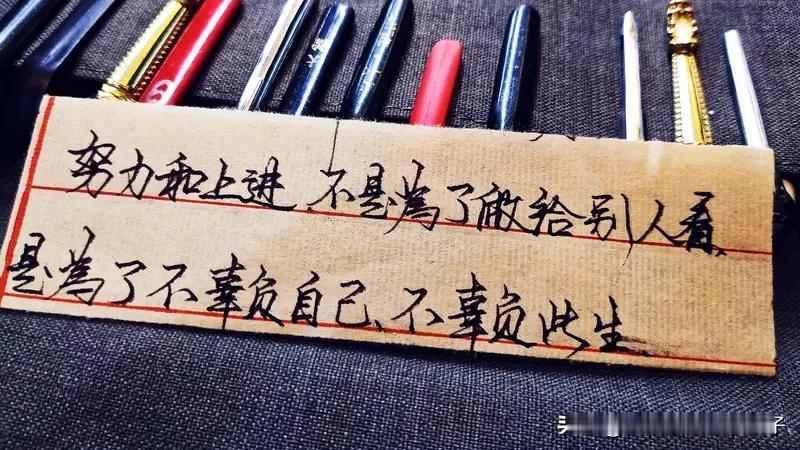 努力和上进、不是為了做给别人看、
是為了不辜负自己、不辜负此生、